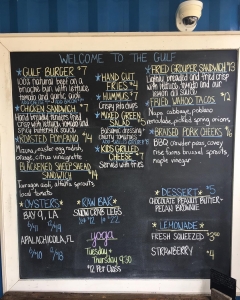 WELCOME TO THE GULF
*GULF BURGER *7
100% natural beef on a
brioche bun with lettuce
tomato and garlic aioli
*CHICKEN SANDWICH *7
Hand breaded tenders fried
crisp with lettuce, tomato and
spicy buttermilk sauce
*ROASTED POMPANO *14
orange, citrus vinaigrette
BLACKENED SHEEPSHEAD
SANDWICH *14
Tarragon aioli, sprouts
local tomato
*OYSTERS
BAY 9, LA
APALACHICOLA, FL
*HAND CUT
FRIES *4
*HUMMUS *7
Crispy pita chips
*MIXED GREEN
SALAD
tomatoes
*KIDS GRILLED
CHEESE
Served with fries
*RAW BAR
SNOW CRAB LEGS
yoga
Tuesday +
Thursday 9:30
$12 Per Class
*FRIED GROUPER SANDWICH *13
Lightly breaded and fried crisp
with lettuce, tomato and our
lemon aioli sauce
*FRIED WAHOO TACOS *12
Napa cabbage, poblano
avocado, pickled spring onions
*BRAISED PORK CHEEKS *16
BBQ cowder peas, cavey
rise farms brussel sprouts,
maple vinegar
*DESSERT *5
CHOCOLATE PEANUT BUTTER-
PECAN BROWNIE
*LEMONADE*
FRESH SQUEEZED $3.00
STRAWBERRY $4